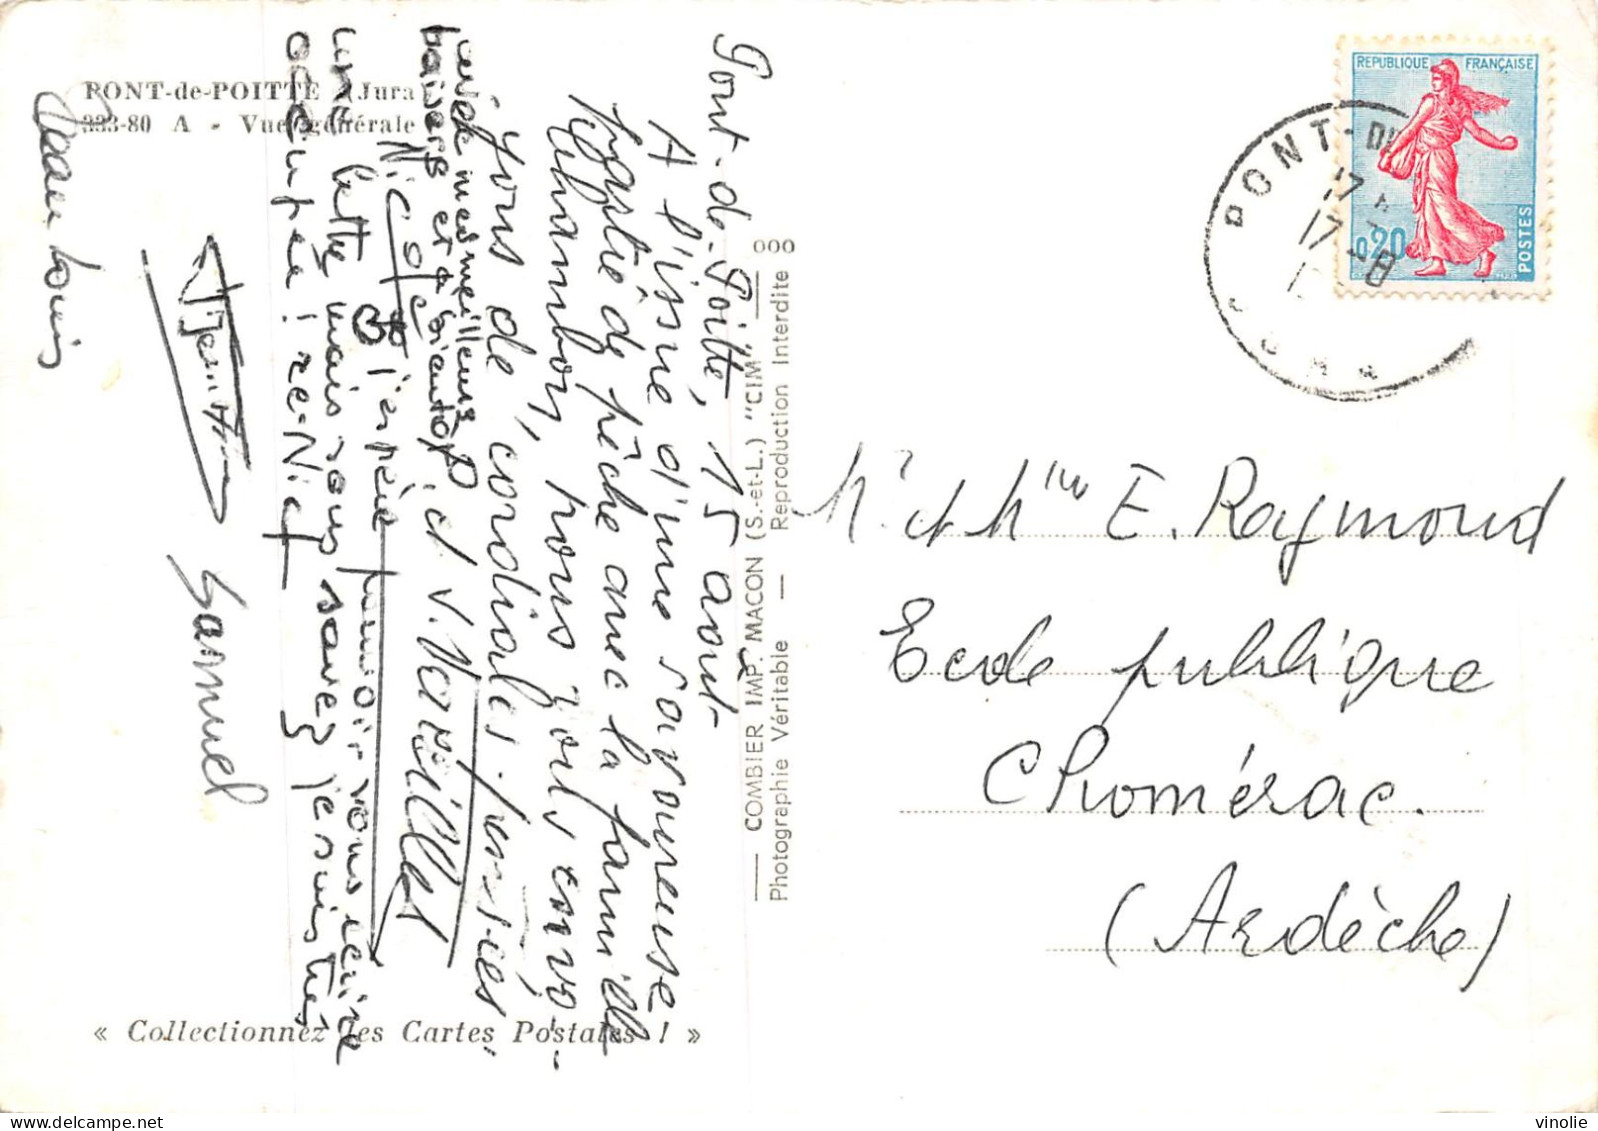 PONT-de-POITTE (Jura)
333-80 A - Vue générale
Pont-de-Poitte, 15 août
A l'issue d'une savoureuse
partie de pêche avec la famille
Chambon, nous vous envo-
yons de cordiales pensées.
et V. Vareilles
avec mes meilleurs
baisers et à bientôt
Nicole
j'espère pouvoir vous écrire
une lettre mais vous savez je suis très
occupée ! re-Nic
Samuel
Jean Louis
« Collectionnez les Cartes Postales ! »
COMBIER IMP. MACON (S.-et-L.) "CIM"
Photographie Véritable — Reproduction Interdite
REPUBLIQUE FRANÇAISE
0,20
POSTES
PONT-DE
17
17-8
JURA
Mr et Mme E. Raymond
Ecole publique
Chomérac.
(Ardèche)
vinolie